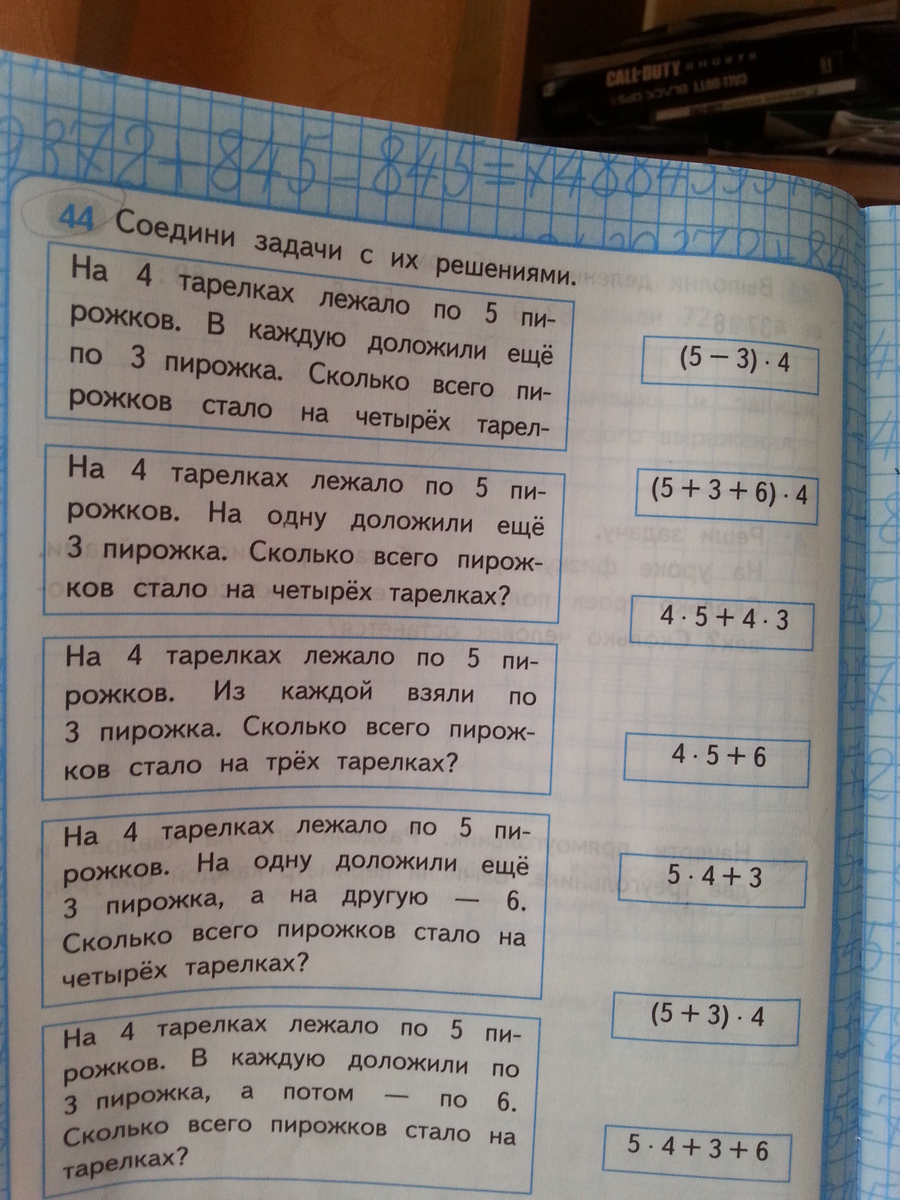 CALL OF DUTY GHOSTS
44 Соедини задачи с их решениями.
На 4 тарелках лежало по 5 пи-
рожков. В каждую доложили ещё
по 3 пирожка. Сколько всего пи-
рожков стало на четырёх тарел-
(5 − 3) · 4
На 4 тарелках лежало по 5 пи-
рожков. На одну доложили ещё
3 пирожка. Сколько всего пирож-
ков стало на четырёх тарелках?
(5 + 3 + 6) · 4
4 · 5 + 4 · 3
На 4 тарелках лежало по 5 пи-
рожков. Из каждой взяли по
3 пирожка. Сколько всего пирож-
ков стало на трёх тарелках?
4 · 5 + 6
На 4 тарелках лежало по 5 пи-
рожков. На одну доложили ещё
3 пирожка, а на другую — 6.
Сколько всего пирожков стало на
четырёх тарелках?
5 · 4 + 3
(5 + 3) · 4
На 4 тарелках лежало по 5 пи-
рожков. В каждую доложили по
3 пирожка, а потом — по 6.
Сколько всего пирожков стало на
тарелках?
5 · 4 + 3 + 6